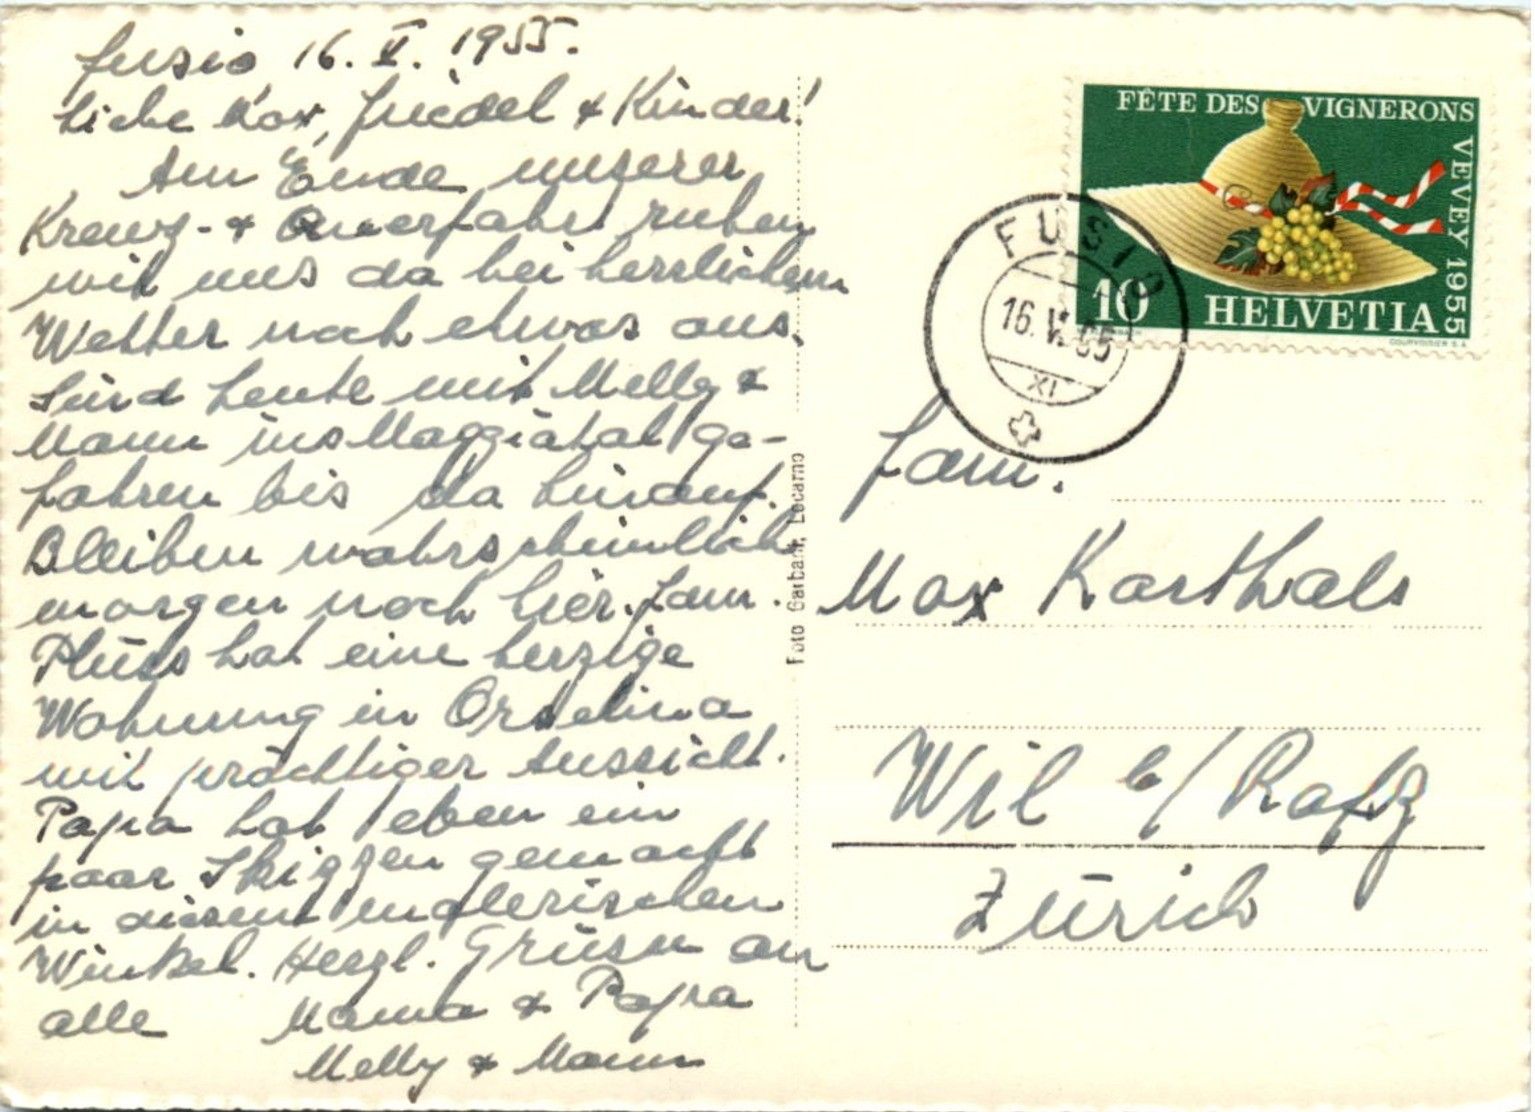 Fusio, 16. V. 1955.
Liebe Max, Friedel & Kinder!
Am Ende unserer
Kreuz- & Querfahrt ruhen
wir uns da bei herrlichem
Wetter noch etwas aus.
Sind heute mit Melly &
Mann ins Maggiatal ge-
fahren bis da hinauf.
Bleiben wahrscheinlich
morgen noch hier. Fam.
Plüss hat eine herzige
Wohnung in Orselina
mit prächtiger Aussicht.
Papa hat eben ein
paar Skizzen gemacht
in diesem malerischen
Winkel. Herzl. Grüsse an
alle Mama & Papa
Melly & Mann
Foto Garbani, Locarno
FÊTE DES VIGNERONS
VEVEY 1955
10 HELVETIA
COURVOISIER S.A.
FUSIO
16. V. 55
XI
Fam.
Max Karthals
Wil b/ Rafz
Zürich